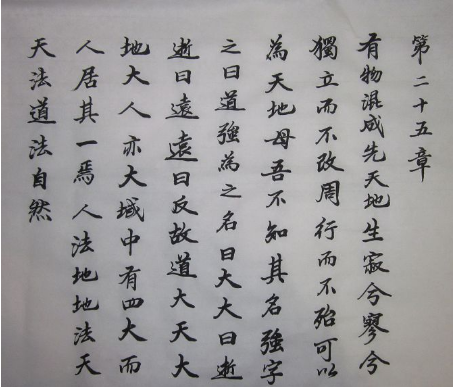 第二十五章
有物混成先天地生寂兮廖兮
獨立而不改周行而不殆可以
為天地母吾不知其名強字
之曰道強為之名曰大大曰逝
逝曰遠遠曰反故道大天大
地大人亦大域中有四大而
人居其一焉人法地地法天
天法道法自然